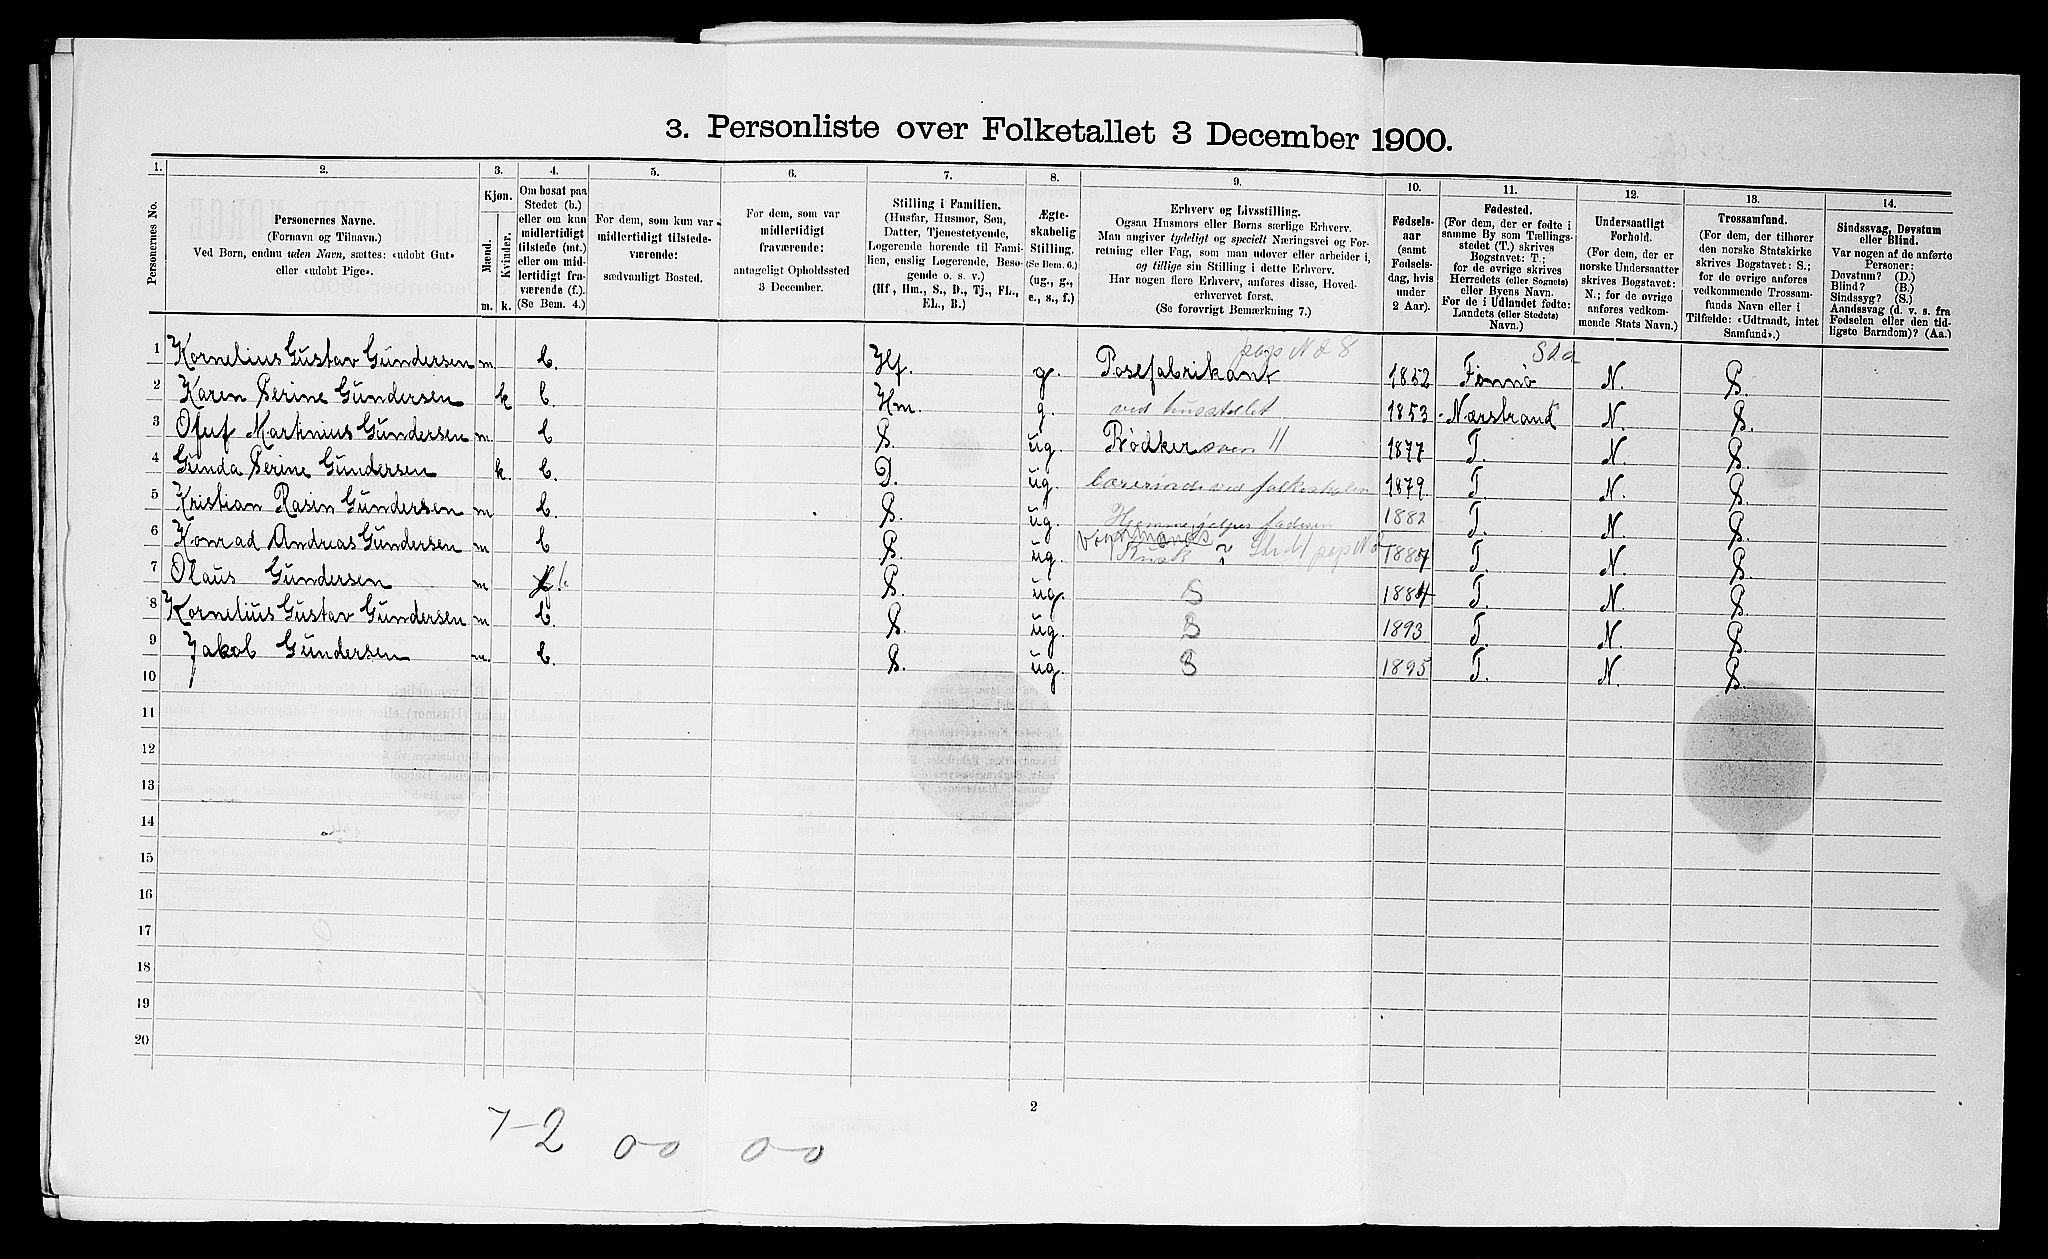 3. Personliste over Folketallet 3 December 1900.
1. 2. 3. 4. 5. 6. 7. 8. 9. 10. 11. 12. 13. 14.
Personernes No.
Personernes Navne.
(Fornavn og Tilnavn.)
Ved Børn, endnu uden Navn, sættes: «udøbt Gut»
eller «udøbt Pige».
Kjøn.
Mænd.
Kvinder.
m. k.
Om bosat paa
Stedet (b.)
eller om kun
midlertidigt
tilstede (mt.)
eller om mid-
lertidigt fra-
værende (f.).
(Se Bem. 4.)
For dem, som kun var
midlertidigt tilstede-
værende:
sædvanligt Bosted.
For dem, som var
midlertidigt
fraværende:
antageligt Opholdssted
3 December.
Stilling i Familien.
(Husfar, Husmor, Søn,
Datter, Tjenestetyende,
Logerende hørende til Fami-
lien, enslig Logerende, Besø-
gende o. s. v.)
(Hf., Hm., S., D., Tj., FL.,
EL., B.)
Ægte-
skabelig
Stilling.
(Se Bem. 6.)
(ug., g.,
e., s., f.)
Erhverv og Livsstilling.
Ogsaa Husmors eller Børns særlige Erhverv.
Man angiver tydeligt og specielt Næringsvei og For-
retning eller Fag, som man udøver eller arbeider i,
og tillige sin Stilling i dette Erhverv.
Har nogen flere Erhverv, anføres disse, Hoved-
erhvervet først.
(Se forøvrigt Bemærkning 7.)
Fødsels-
aar
(samt
Fødsels-
dag, hvis
under
2 Aar).
Fødested.
(For dem, der er fødte i
samme By som Tællings-
stedet (T.) skrives
Bogstavet: T.;
for de øvrige skrives
Herredets (eller Sognets)
eller Byens Navn.
For de i Udlandet fødte:
Landets (eller Stedets)
Navn.)
Undersaatligt
Forhold.
(For dem, der er
norske Undersaatter
skrives Bogstavet:
N.; for de øvrige
anføres vedkom-
mende Stats Navn.)
Trossamfund.
(For dem, der tilhører
den norske Statskirke
skrives Bogstavet: S.;
for de øvrige anføres
vedkommende Trossam-
funds Navn eller i
Tilfælde: «Udtraadt, intet
Samfund».)
Sindssvag, Døvstum
eller Blind.
Var nogen af de anførte
Personer:
Døvstum? (D.)
Blind? (B.)
Sindssyg? (S.)
Aandssvag (d. v. s. fra
Fødselen eller den tid-
ligste Barndom)? (Aa.)
1 Kornelius Gustav Gundersen m. b. Hf. g. Posefabrikant 1852 N. S.
2 Karen Serine Gundersen k b. Hm. g. ved husstellet 1853 Nærstrand N. S.
3 Oluf Martinius Gundersen m. b S. ug. Bødker svend 1877 T. N. S.
4 Gunda Serine Gundersen k. b. D. ug. Lærerinde ved folkeskolen 1879 T. N. S.
5 Kristian Rasin Gundersen m b. S. ug. Hjemme 1882 T. N. S.
6 Konrad Andreas Gundersen m b S. ug. T. N. S.
7 Olaus Gundersen m b. S. ug. S T. N. S.
8 Kornelius Gustav Gundersen m b. S. ug. S 1893 T. N. S.
9 Jakob Gundersen m. b. S. ug. S 1895 T. N. S.
10
11
12
13
14
15
16
17
18
19
20
2
7-2 00 00